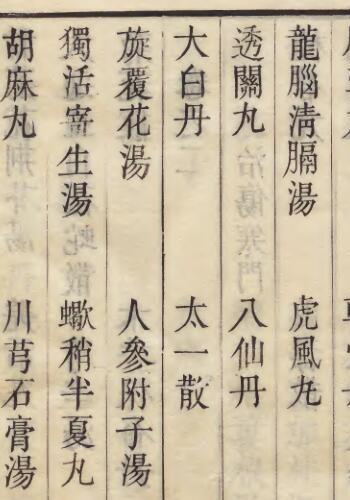 龍腦清膈湯　虎風丸
透關丸　八仙丹
大白丹　太一散
旋覆花湯　人參附子湯
獨活寄生湯　蠍稍半夏丸
胡麻丸　川芎石膏湯